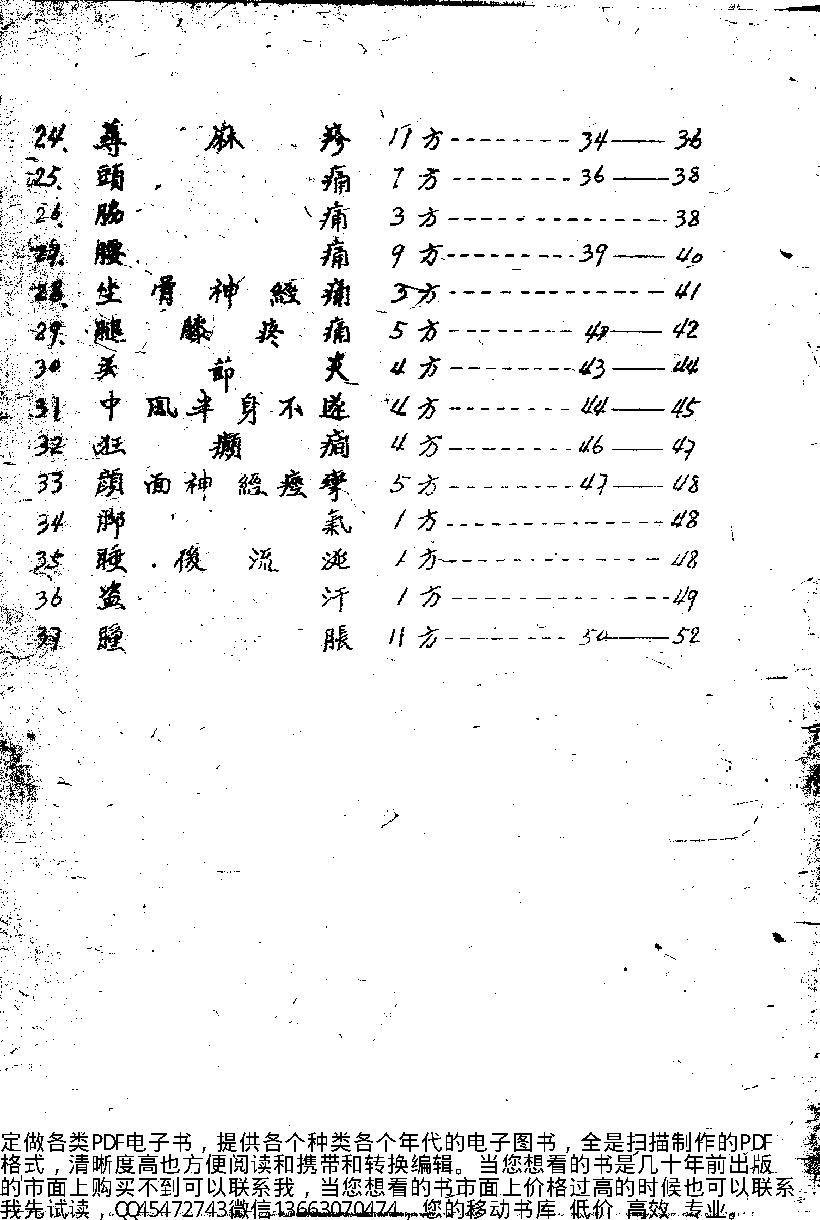 24、蕁麻疹 11方--------34——36
25、頭痛 7方--------36——38
26、脇痛 3方--------------38
27、腰痛 9方--------39——40
28、坐骨神經痛 3方--------------41
29、腿膝疼痛 5方--------42——42
30 关節炎 4方--------43——44
31 中風半身不遂 4方--------44——45
32 狂癲癎 4方--------46——47
33 顔面神經痙攣 5方--------47——48
34 脚氣 1方--------------48
35 睡後流涎 1方--------------48
36 盗汗 1方--------------49
37 腫脹 11方--------50——52
定做各类PDF电子书，提供各个种类各个年代的电子图书，全是扫描制作的PDF
格式，清晰度高也方便阅读和携带和转换编辑。当您想看的书是几十年前出版
的市面上购买不到可以联系我，当您想看的书市面上价格过高的时候也可以联系
我先试读，QQ45472743微信13663070474，您的移动书库 低价 高效 专业。